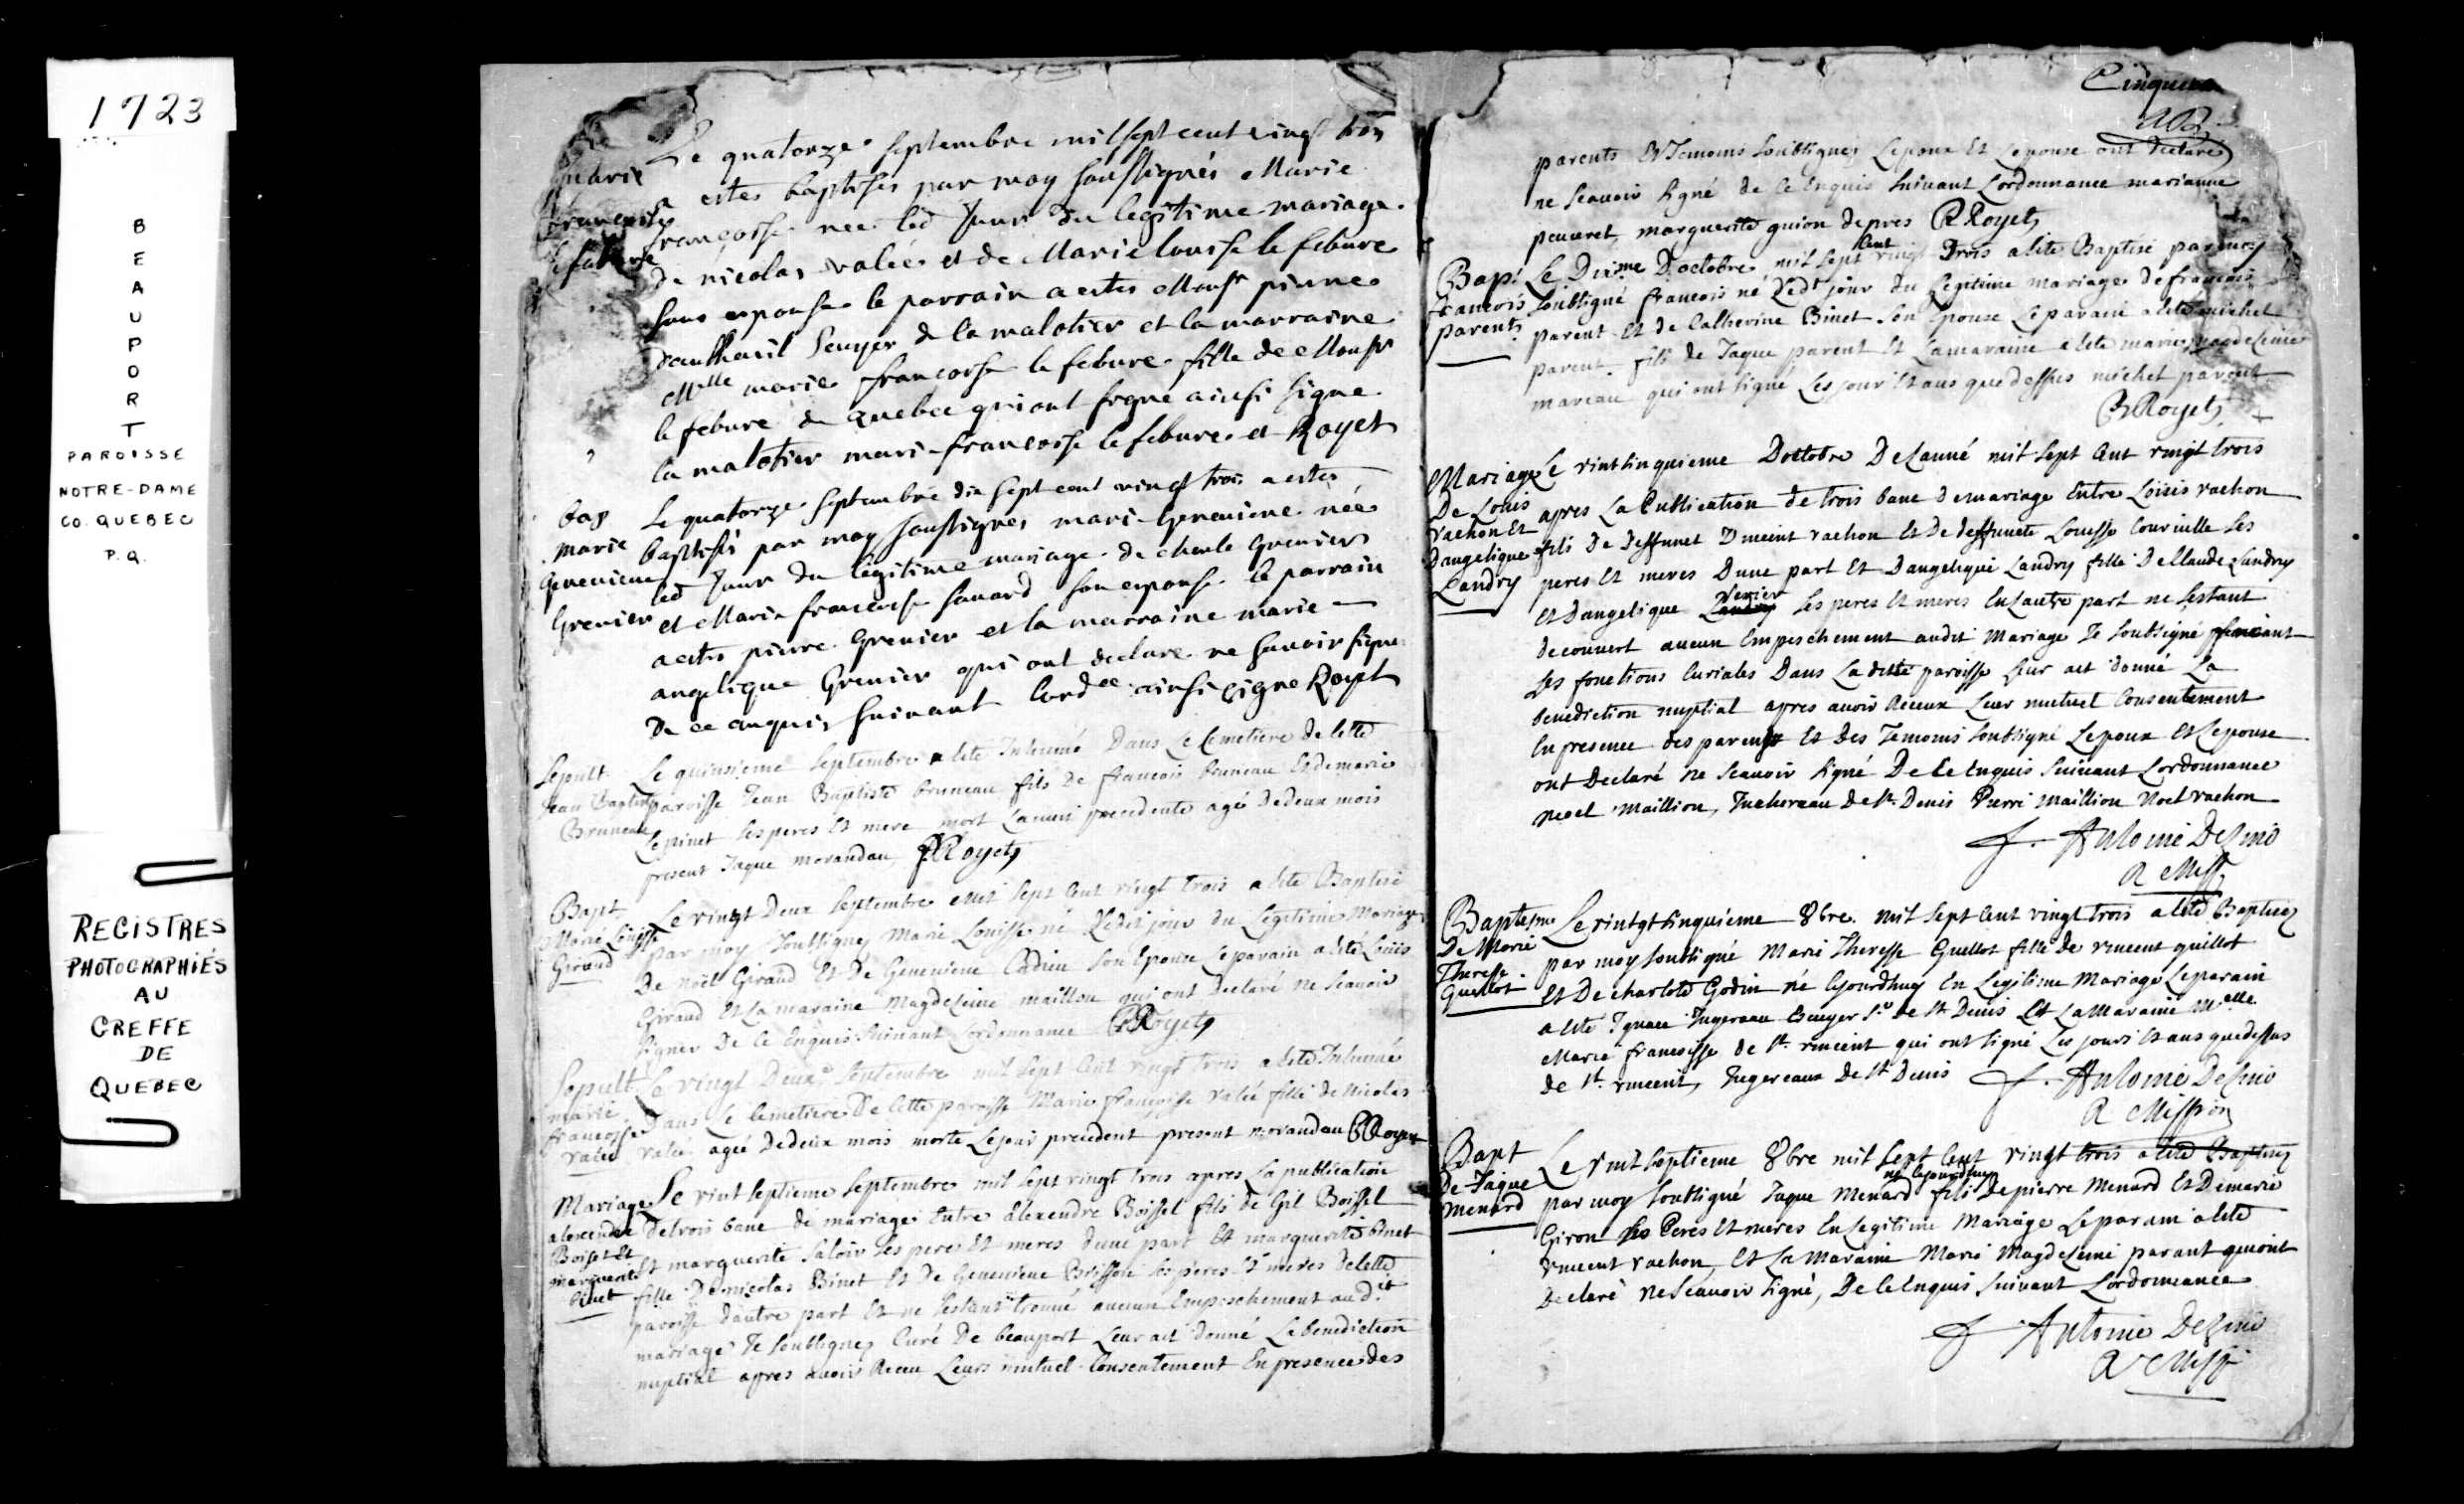 1723
BEAUPORT
PAROISSE
NOTRE-DAME
CO. QUEBEC
P.Q.
REGISTRES
PHOTOGRAPHIÉS
AU
GREFFE
DE
QUEBEC
Marie
francoise
Le quatorze septembre mil sept cent vingt trois
a estes baptisés par moy soussignés Marie
francoisse nee led Jour du legitime mariage
de nicolas valée et de Marie louisse le febure
sons esponse le parrain a estes Monsr pierre
Seuyer de la malotier et la marraine
Mlle marie francoisse le febure fille de Monsr
le febure de quebec qui ont signé ainsi signe
la malotier mari-francoisse le febure et Royet
bap
marie
Genevieue
Grenier
Le quatorze septembre dix sept cent vingt trois a estes
baptisés par moy soussignés mari-Genevieue née
led Jour du légitime mariage de charle Grenier
et Marie francoise sauard son esponse le parrain
a estes pierre Grenier et la marraine marie
angelique Grenier qui ont declare ne sauoir signe
de ce anquis suiuant lordce ainsi signe Royet
Sepult.
Jean Baptiste
Bruneau
Le quinsieme septembre a ete Inhumé Dans Le Cemetiere de cette
paroisse Jean Baptiste bruneau fils de francois bruneau Et de marie
Lepinet ses peres Et mere mort La nuit precedente agé de deux mois
present Jaque morandau PRoyet
Bapt.
Marie Louisse
Giraud
Le vingt Deux septembre mil sept Cent vingt trois a ete Baptisé
par moy soubsigney Marie Louisse né Ledit jour du Legitime Mariage
De Noël Giraud Et De Genevieue Cadieu son Epouse Le parain a eté Louis
Giraud Et La maraine Magdeleine maillou qui ont Declaré ne scauoir
signer De Ce Enquis suiuant Lordonnance PRoyet
Sepult
marie
francoisse
Valée
Le vingt Deuxe septembre mil sept Cent vingt trois a ete Inhumé
Dans Le Cemetiere De Cette paroisse Marie francoisse valée fille de Nicolas
valée agée De deux mois morte Le jour precedent present morandau PRoyet
Mariage
alexendre
Boisel Et
marguerite
binet
Le vint septieme septembre mil sept vingt trois apres La publication
de trois banc de mariage Entre alexendre Boissel fils de Gil Boissel
Et marguerite saloir ses peres Et meres dune part Et marguerite binet
fille De nicolas Binet Et de Genevieue Brisson ses peres Et meres de cette
paroisse dautre part Et ne sestant trouué aucun Empeschement au dit
mariage Je soubsigney Curé De beauport Leur ait donné La benediction
nuptial apres auoir Receu Leurs mutuel Consentement En presence des
Cinquieme
parents Et Temoins soubsigney Lepoux Et Lepouse ont declarés
ne scauoir signé de Ce Enquis suiuant Lordonnance marianne
peuuret, marguerite guion depres PRoyet
Bap.
francois
parent
Le Dixme Doctobre mil sept Cent vingt Trois a ete Baptisé par moy
soubsigné francois né Ledt jour du Legitime mariage de francois
parent Et de Catherine Binet son Epouse Le parain a ete michel
parent fils de Jaque parent Et La maraine a ete marie magdeleine
mareau qui ont signé Les jour Et ans que dessus michel parent
PRoyet
Mariage
De Louis
vachon Et
Dangelique
Landry
Le vint Cinquieme Doctobre De Lanné mil sept Cent vingt trois
apres La Publication de trois banc de mariage Entre Loüis vachon
fils De Deffunct Vincent vachon Et De deffuncte Louisse Couruille ses
peres Et meres Dune part Et Dangelique Landry fille De Claude Landry
Et Dangelique vesier ses peres Et meres En Lautre part ne sestant
decouuert aucun Empeschement audit Mariage Je soubsigné fesant
les fonctions Curiales Dans La ditte paroisse Leur ait donné La
benediction nuptial apres auoir Receux Leur mutuel Consentement
En presence des parents Et des Temoins soubsigné Lepoux Et Lepouse
ont Declaré ne scauoir signé De Ce Enquis suiuant Lordonnance
noel maillion, Juchereau De St. Denis Pierre maillion Noel vachon
f. Antoine Delino
R Miss
Baptesme
De Marie
Theresse
Guillot
Le vintgt Cinquieme 8bre. mil sept Cent vingt trois a ete Baptisez
par moy soubsigné Marie Theresse Guillot fille de vincent guillot
Et De charlote Godin né Cejourdhuy En Legitime Mariage Le parain
a ete Ignace Jugereau Escuyer Sr de St Denis Et La Maraine Melle
Marie francoisse de St. vincent qui ont signé Les jours Et ans que dessus
de St. vincent, Jugereaux de St Denis f. Antoine Delino
R Mission
Bapt
De Jaque
Menard
Le vint septieme 8bre mil sept Cent vingt trois a ete Baptisez
par moy soubsigné Jaque Menard né Cejourdhuy fils De pierre Menard Et De marie
Giron ses Peres Et meres En Legitime Mariage Le parain a ete
vincent vachon, Et La Maraine Marie Magdeleine parant qui ont
Declaré ne scauoir signé, De Ce Enquis suiuant Lordonnance
f Antoine Delino
R Miss